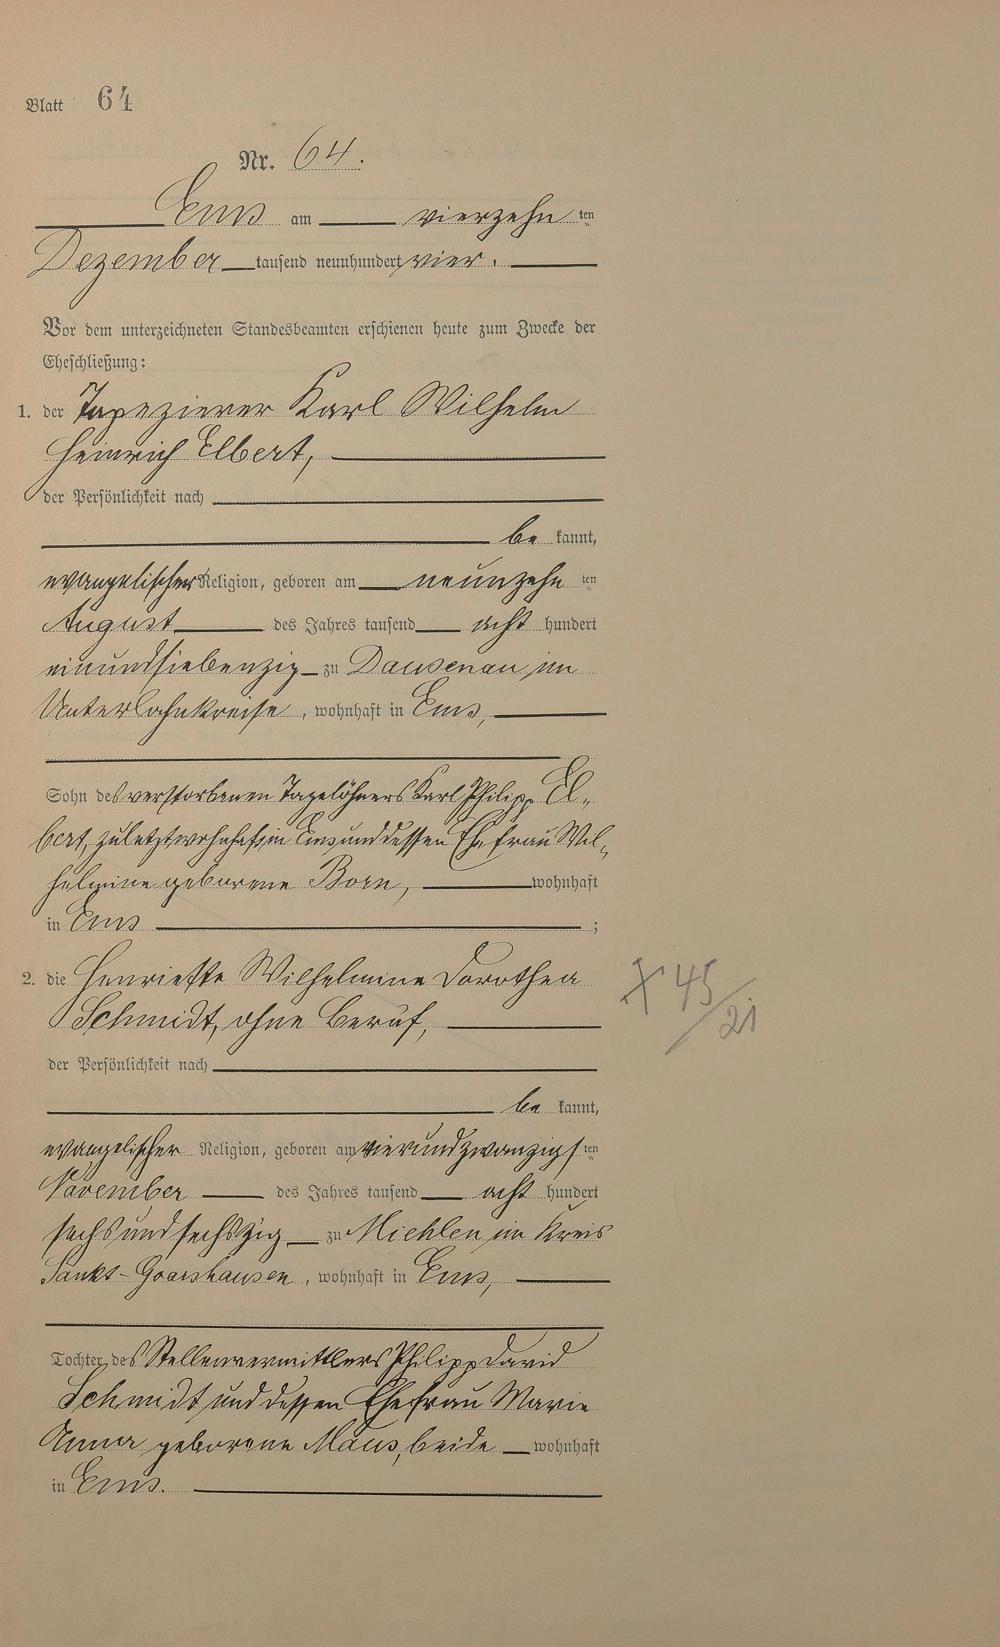 Blatt 64
Nr. 64.
Ems am vierzehn ten
Dezember tausend neunhundert vier.
Vor dem unterzeichneten Standesbeamten erschienen heute zum Zwecke der
Eheschließung:
1. der Tapezierer Karl Wilhelm
Heinrich Elbert,
der Persönlichkeit nach
be kannt,
evangelischer Religion, geboren am neunzehn ten
August des Jahres tausend acht hundert
einundsiebenzig zu Dausenau im
Unterlahnkreise, wohnhaft in Ems,
Sohn des verstorbenen Tagelöhners Karl Philipp El-
bert, zuletzt wohnhaft in Ems und dessen Ehefrau Wil-
helmine geborene Born, wohnhaft
in Ems ;
2. die Henriette Wilhelmine Dorothea
Schmidt, ohne Beruf,
† 45/21
der Persönlichkeit nach
be kannt,
evangelischer Religion, geboren am vierundzwanzigs ten
November des Jahres tausend acht hundert
sechsundsechszig zu Miehlen im Kreis
Sankt-Goarshausen, wohnhaft in Ems,
Tochter des Stellenvermittlers Philipp David
Schmidt und dessen Ehefrau Marie
Anna geborene Maus, beide wohnhaft
in Ems.